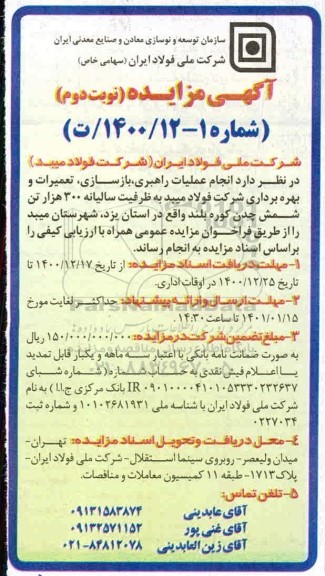 سازمان توسعه و نوسازی معادن و صنایع معدنی ایران
شرکت ملی فولاد ایران (سهامی خاص)
آگهی مزایده (نوبت دوم)
(شماره ۱-۱۴۰۰/۱۲/ت)
شرکت ملی فولاد ایران (شرکت فولاد میبد)
در نظر دارد انجام عملیات راهبری، بازسازی، تعمیرات و
بهره برداری شرکت فولاد میبد به ظرفیت سالیانه ۳۰۰ هزار تن
شمش چدن کوره بلند واقع در استان یزد، شهرستان میبد
را از طریق فراخوان مزایده عمومی همراه با ارزیابی کیفی را
براساس اسناد مزایده به انجام رساند.
۱- مهلت دریافت اسناد مزایده: از تاریخ ۱۴۰۰/۱۲/۱۷ تا
تاریخ ۱۴۰۰/۱۲/۲۵ در اوقات اداری.
۲- مهلت ارسال و ارائه پیشنهاد: حداکثر لغایت مورخ
۱۴۰۱/۰۱/۱۵ تا ساعت ۱۴:۳۰
۳- مبلغ تضمین شرکت در مزایده: ۱۵۰/۰۰۰/۰۰۰/۰۰۰ ریال
به صورت ضمانت نامه بانکی با اعتبار سه ماهه و یکبار قابل تمدید
یا اعلام فیش نقدی به حساب شماره (شماره شبای
IR ۰۹۰۱۰۰۰۰۴۱۰۱۰۵۳۳۳۰۲۳۲۶۳۷ بانک مرکزی ج.ا.ا) به نام
شرکت ملی فولاد ایران با شناسه ملی ۱۰۱۰۲۶۸۱۹۳۱ و شماره ثبت
۰۲۲۷۰۳۴
۴- محل دریافت و تحویل اسناد مزایده: تهران-
میدان ولیعصر- روبروی سینما استقلال- شرکت ملی فولاد ایران-
پلاک ۱۷۱۳- طبقه ۱۱ کمیسیون معاملات و مناقصات.
۵- تلفن تماس:
آقای عابدینی ۰۹۱۳۱۵۸۳۸۷۴
آقای غنی پور ۰۹۱۳۲۵۷۱۱۵۲
آقای زین العابدینی ۰۲۱-۸۴۸۱۲۰۷۸